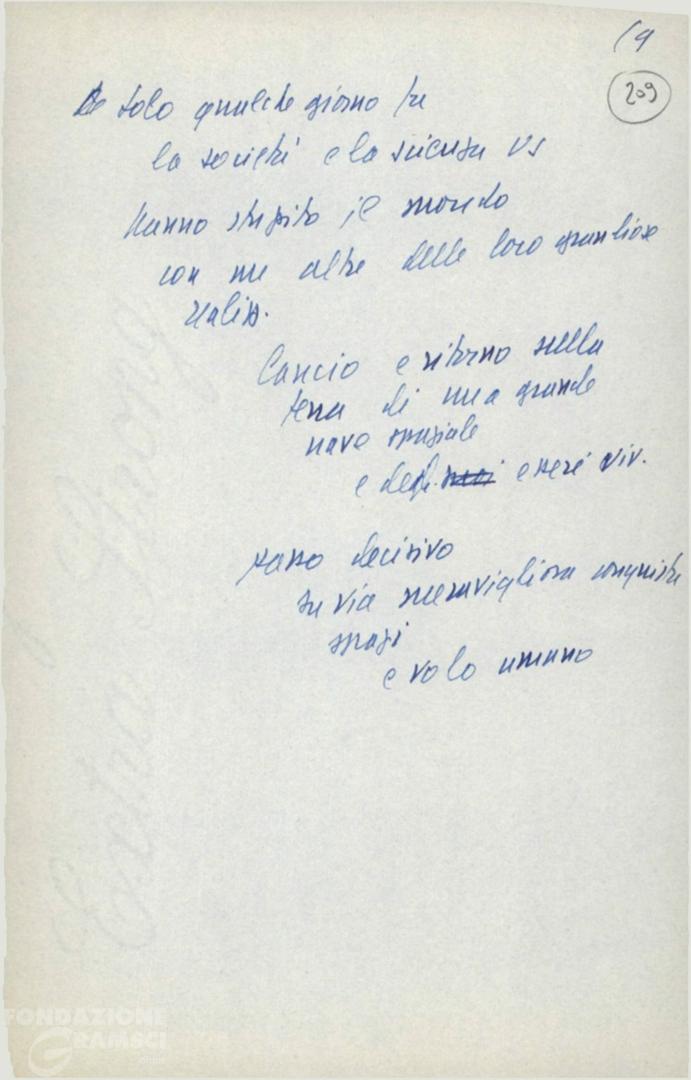 19
209
solo qualche giorno fa
la società e la scienza US
hanno stupito il mondo
con una altra delle loro grandiose
realizz.
Lancio e ritorno sulla
terra di una grande
nave spaziale
e degli esseri viv.
passo decisivo
su via meravigliosa conquista
spazi
e volo umano
Extra Strong
FONDAZIONE
GRAMSCI